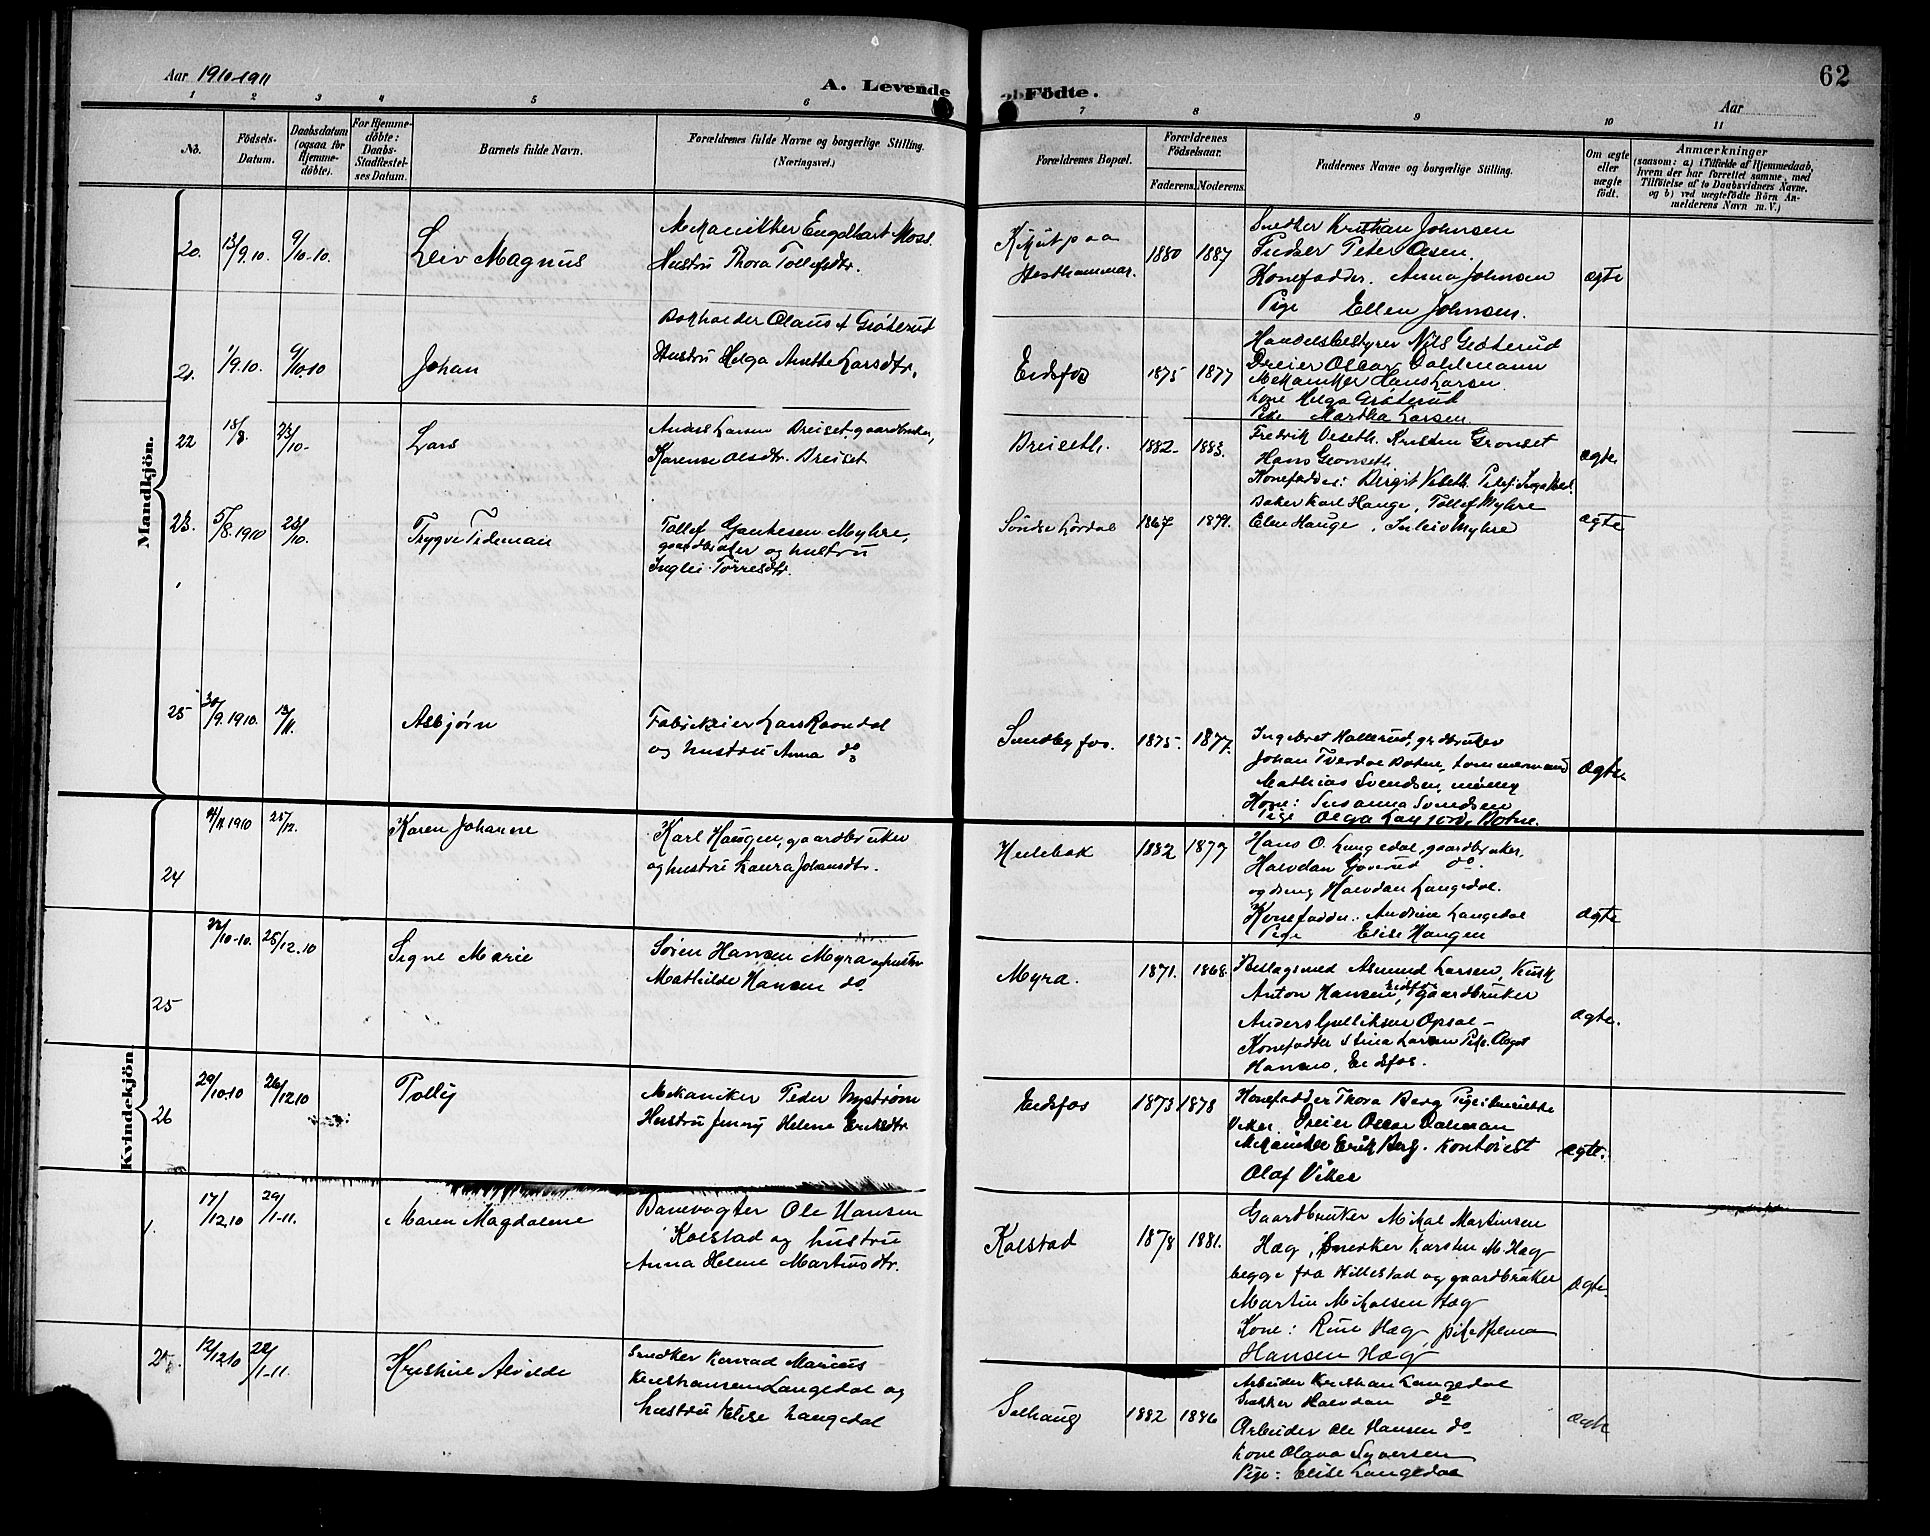 Aar 1910-1911
A. Levende
Födte.
Aar
62
1 2 3 4 5 6
7 8 9 10 11
No.
Födsels-
Datum.
Daabsdatum
(ogsaa for
Hjemme-
döbte).
For Hjemme-
döbte:
Daabs-
Stadfæstel-
ses Datum.
Barnets fulde Navn.
Forældrenes fulde Navne og borgerlige Stilling.
(Næringsvei.)
Forældrenes Bopæl.
Forældrenes
Födselsaar.
Faderens. Moderens.
Faddernes Navne og borgerlige Stilling.
Om ægte
eller
uægte
födt.
Anmærkninger
(saasom: a) i Tilfælde af Hjemmedaab,
hvem der har forrettet samme, med
Tilföielse af to Daabsvidners Navne.
og b) ved uægtefödte Börn An-
melderens Navn m. V.)
Mandkjön.
20. 13/9.10. 9/10-10. Leiv Magnus
Mekanikker Engelhart Moss.
Hustru Thora Tollefsdtr.
Hesthammar. 1880 1887
Snedker Kristian Johnsen
Peter Olsen
Konefadder. Anna Johnsen
Pige Ellen Johnsen.
ægte
21. 1/9.10. 9/10.10 Johan
Bokholder Olaus A Grøterud
Hustru Helga Anette Larsdtr.
Eidsfos 1875 1877
Handelsbestyrer Nils Grøterud
Dreier Oscar Dahlmann
Mekaniker Hans Larsen
Kone Helga Grøterud
Pike Martha Larsen
22 18/8. 23/10- Lars
Anders Larsen Dreiset, gaardbruker,
Karense Olsdtr. Dreiset
Dreiseth. 1882- 1883.
Fredrik Viseth. Kristen Gronset
Hans Gronseth.
Konefadder: Birgit Viseth.
ægte
23. 5/8.1910 23/10. Trygve Tideman
Tollef Gautesen Myhre,
gaardbruker og hustru
Inglei Torresdtr.
Søndre Lørdal 1867 1879.
Baker Karl Hauge, Tollef Myhre
Elen Hauge, Inleiv Myhre
ægte
25 30/9.1910. 13/11. Asbjørn
Fabrikeier Lars Ramdal
og hustru Anna do
Sundbyfos. 1875. 1877.
Ingebret Hallerud, grdbruker
Johan Tverdal Botne, tømmermand
Mathias Svendsen, møller
Kone: Susanna Svendsen
Pige Olga Botne.
ægte
Kvindekjön.
24 4/11 1910 25/12. Karen Johanne
Karl Haugen, gaardbruker
og hustru Laura Johansdtr.
Hillebak 1882 1879
Hans O. Langedal, gaardbruker,
Halvdan Goverud do
og dreng Halvdan Langedal.
Konefadder: Andrine Langedal
Pige Elise Haugen
ægte
25 22/10-10. 25/12.10 Signe Marie
Søren Hansen Myra og hustru
Mathilde Hansen do.
Myra. 1871. 1868.
Beslagsmed Asmund Larsen, Kusk
Anton Hansen, Eidsfos gaardbruker
Anders Gulliksen Opsal -
Konefadder Stina Larsen Pike: Aagot
Hansen, Eidsfos.
ægte.
26 29/10.10 26/12.10 Polly
Mekaniker Peder Nystrøm
Hustru Jenny Helene Eriksdtr
Eidsfos 1873 1878
Konefadder Thora Berg Pige Henriette
Viker. Dreier Oscar Dalman
Mekaniker Erik Berg. Kontorist
Olaf Viker
ægte.
1. 17/12.10 29/1-11. Maren Magdalene
Banevogter Ole Hansen
Kolstad og hustru
Anna Helene Martinsdtr.
Kolstad 1878 1881.
Gaardbruker Mikal Martinsen
Hæg, Snedker Karsten M. Hæg
begge fra Hillestad og gaardbruker
Martin Mikalsen Hæg
Kone: Rine Hæg, pike Helma
Hansen Hæg
ægte.
2. 12/12.10 22/1-11. Kristine Alvilde
Snedker Konrad Marius
Kristiansen Langedal og
hustru Elise Langedal
Solhaug 1882 1886
Arbeider Kristian Langedal
Snekker Halvdan do
Arbeider Ole Hansen do
Kone Olava Syversen
Pige: Elise Langedal
ægte